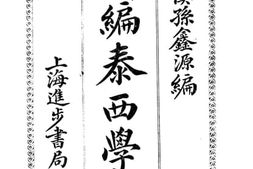 孫鑫源編
編泰西學
上海進步書局